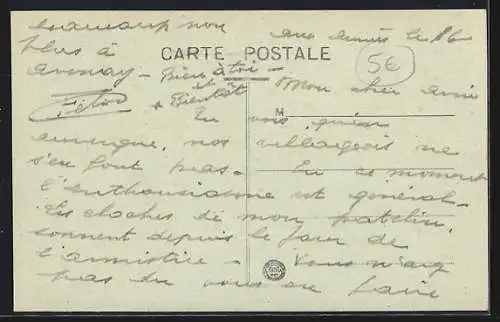 beaucoup non
plus à
avenay - Bien à toi -
et
à Bientôt
CARTE POSTALE
5€
Mon cher ami
M
Tu vois qu'en
auvergne, nos villageois ne
s'en font pas - En ce moment
l'enthousiasme est général -
Les cloches de mon patelin,
sonnent depuis le jour de
l'armistice - Vous n'avez
pas du vous en faire